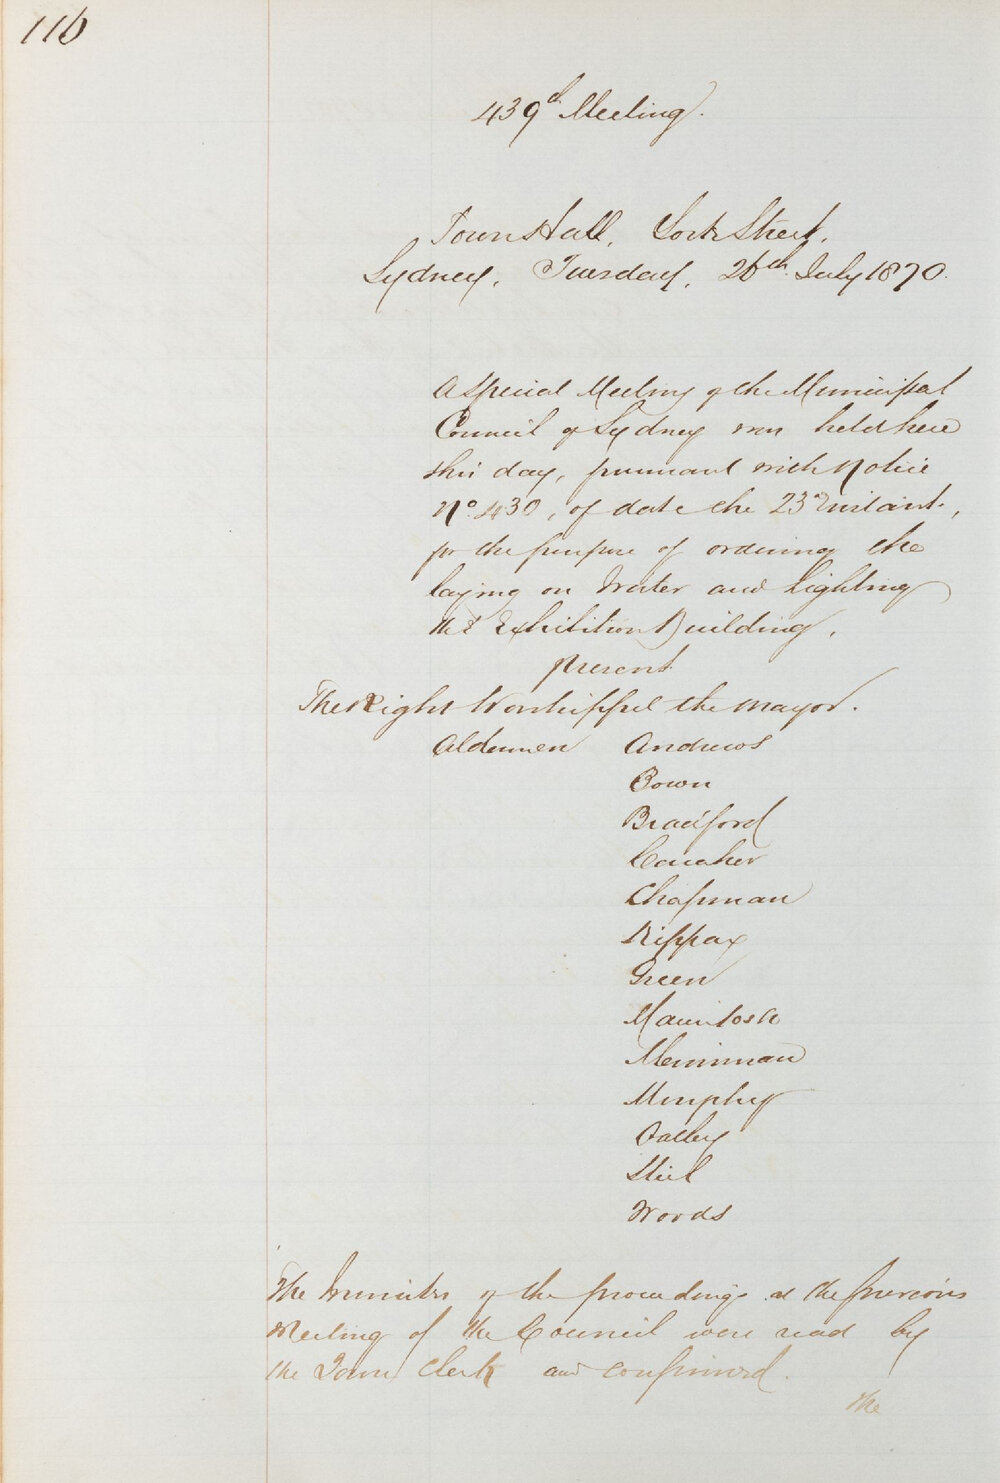 116
439th Meeting.
Town Hall, York Street,
Sydney, Tuesday, 26th July 1870.
A special Meeting of the Municipal
Council of Sydney was held here
this day, pursuant with Notice
No. 430, of date the 23rd instant,
for the purpose of ordering the
laying on Water and lighting
the Exhibition Building.
present
The Right Worshipful the Mayor.
Aldermen Andrews
Bown
Bradford
Caraher
Chapman
Kippax
Green
Macintosh
Merriman
Murphy
Oatley
Steel
Woods
The Minutes of the proceedings at the previous
Meeting of the Council were read by
the Town Clerk and confirmed.
The